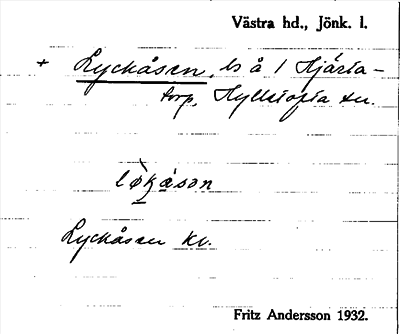 Västra hd., Jönk. l.
+ Lyckåsen, ls å 1 Hjärta-
torp, Hylletofta sn.
lòkåsən
Lyckåsen kv.
Fritz Andersson 1932.